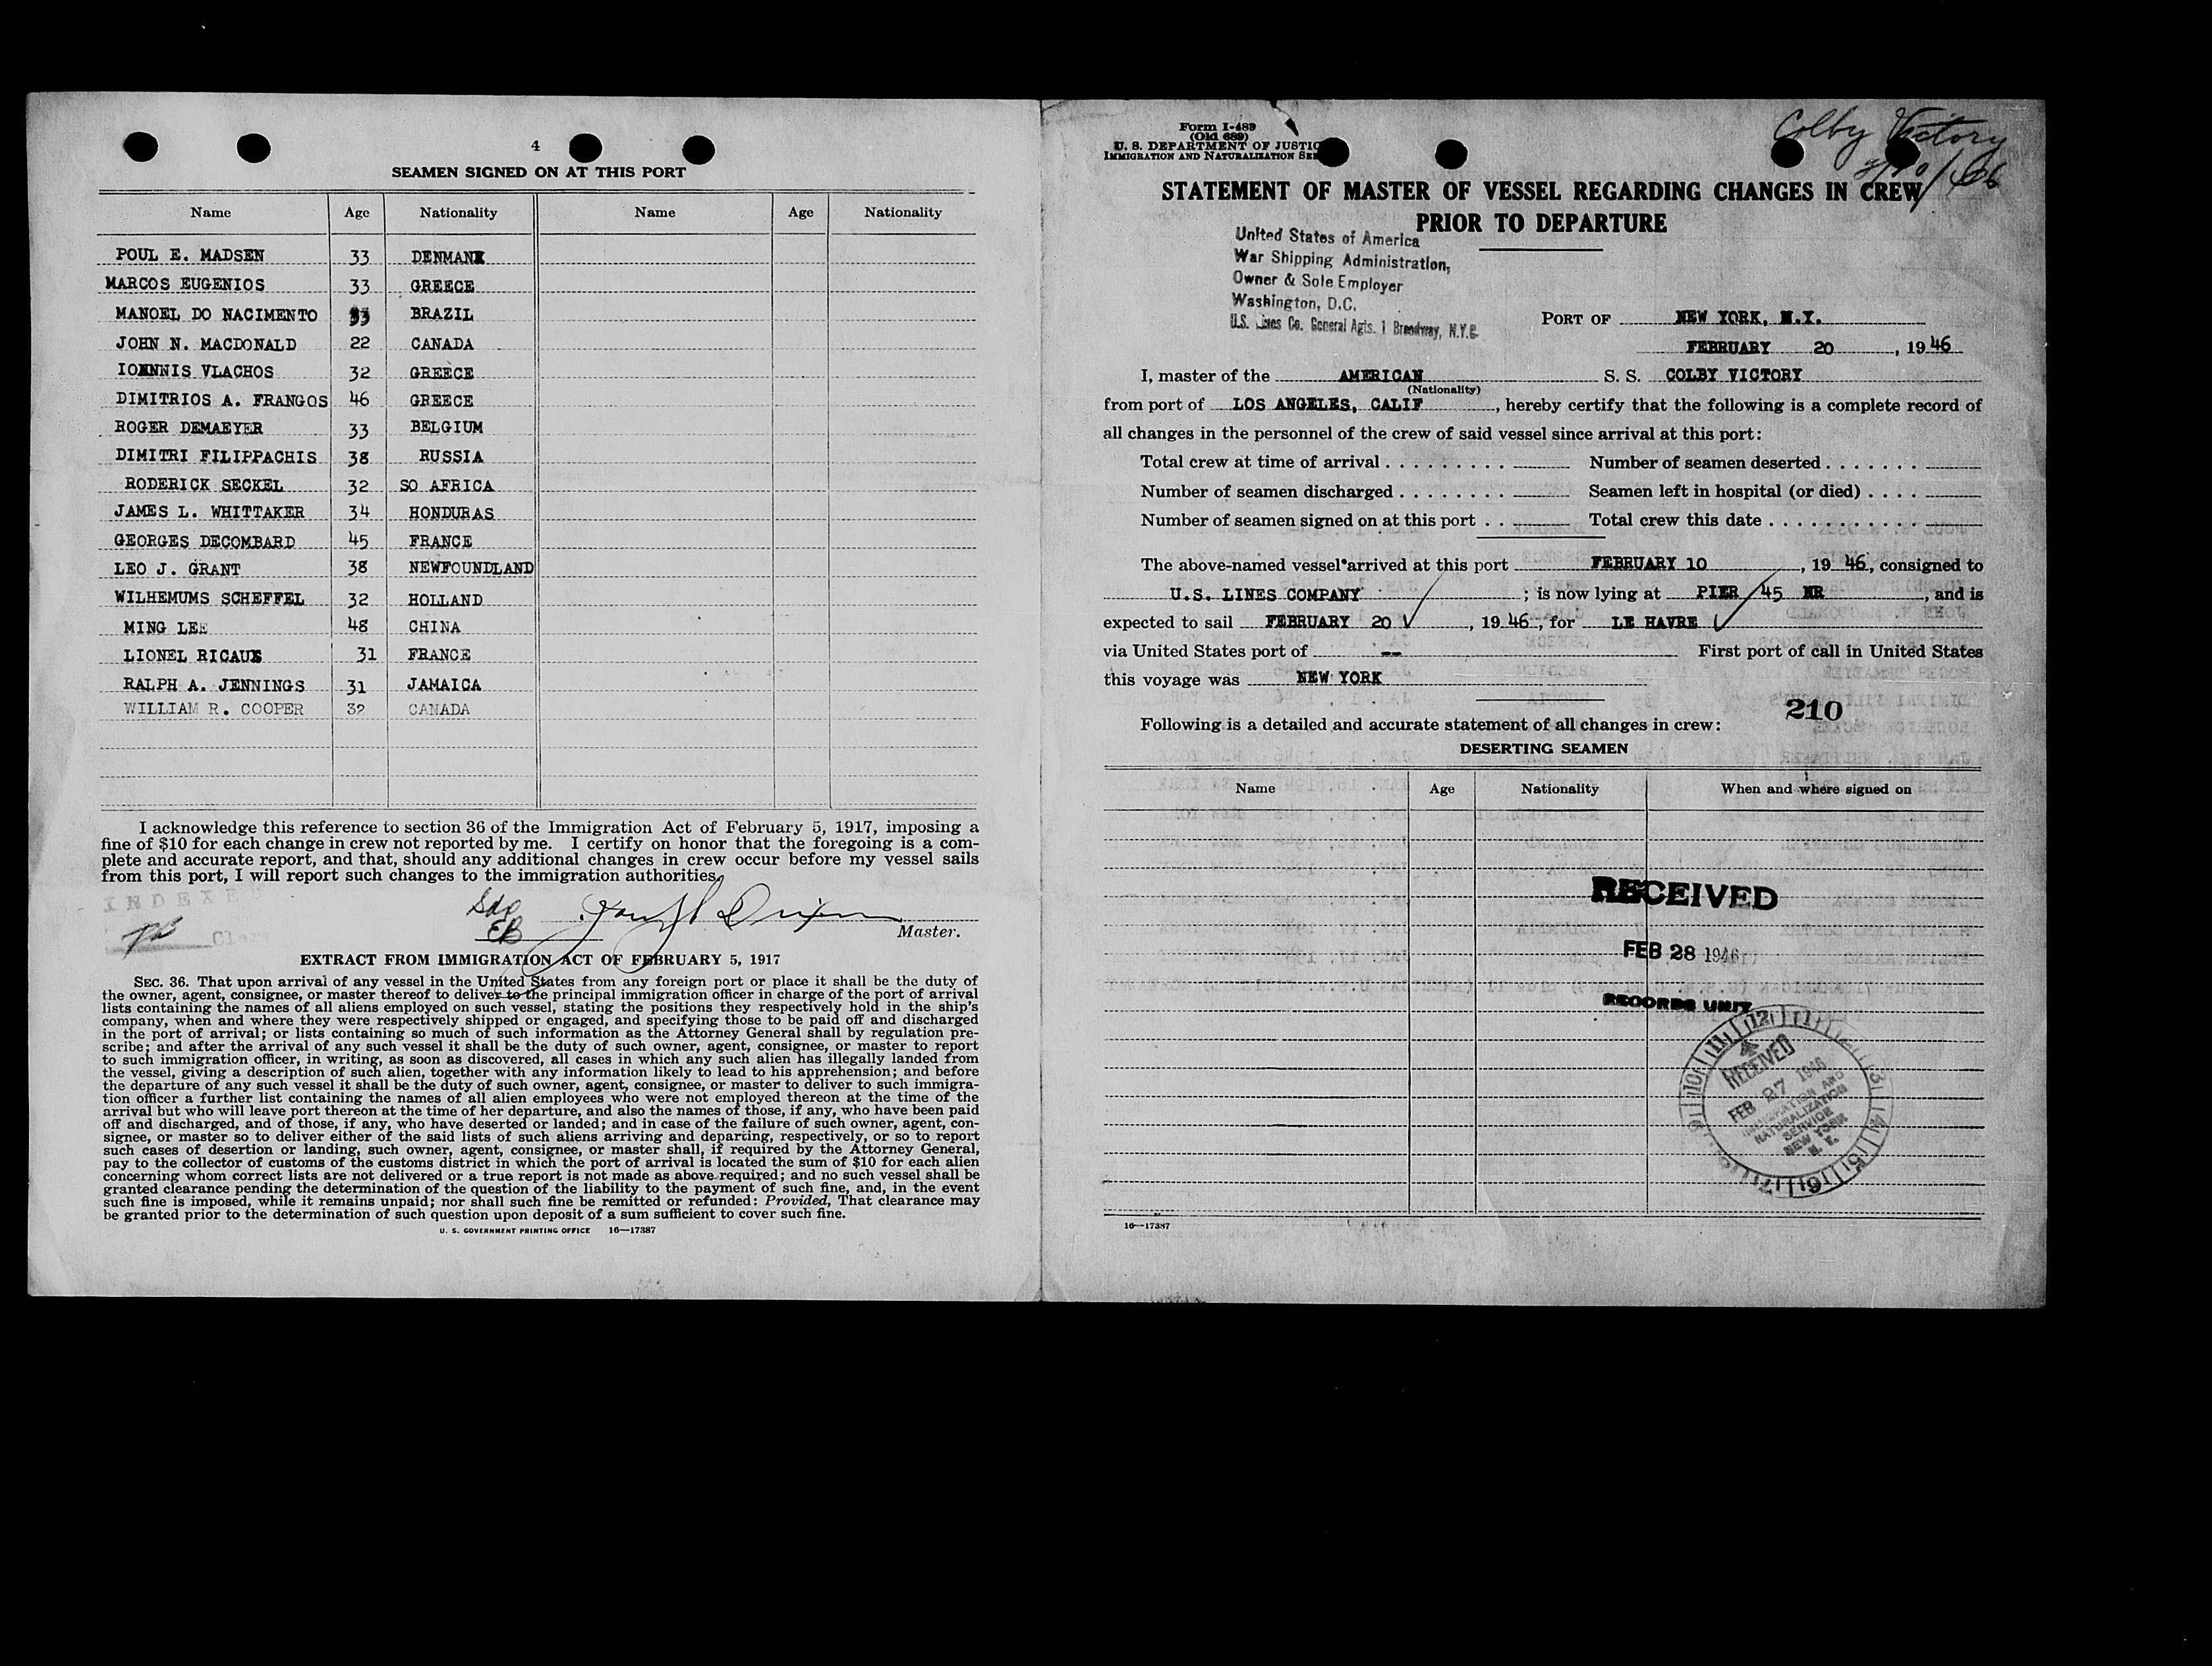 4
SEAMEN SIGNED ON AT THIS PORT
Name Age Nationality Name Age Nationality
POUL E. MADSEN 33 DENMARK
MARCOS EUGENIOS 33 GREECE
MANOEL DO NACIMENTO 33 BRAZIL
JOHN N. MACDONALD 22 CANADA
IOANNIS VLACHOS 32 GREECE
DIMITRIOS A. FRANGOS 46 GREECE
ROGER DEMAEYER 33 BELGIUM
DIMITRI FILIPPACHIS 38 RUSSIA
RODERICK SECKEL 32 SO AFRICA
JAMES L. WHITTAKER 34 HONDURAS
GEORGES DECOMBARD 45 FRANCE
LEO J. GRANT 38 NEWFOUNDLAND
WILHEMUMS SCHEFFEL 32 HOLLAND
MING LEE 48 CHINA
LIONEL RICAUX 31 FRANCE
RALPH A. JENNINGS 31 JAMAICA
WILLIAM R. COOPER 32 CANADA
I acknowledge this reference to section 36 of the Immigration Act of February 5, 1917, imposing a
fine of $10 for each change in crew not reported by me. I certify on honor that the foregoing is a com-
plete and accurate report, and that, should any additional changes in crew occur before my vessel sails
from this port, I will report such changes to the immigration authorities.
INDEXED
Clerk
Master.
EXTRACT FROM IMMIGRATION ACT OF FEBRUARY 5, 1917
SEC. 36. That upon arrival of any vessel in the United States from any foreign port or place it shall be the duty of
the owner, agent, consignee, or master thereof to deliver to the principal immigration officer in charge of the port of arrival
lists containing the names of all aliens employed on such vessel, stating the positions they respectively hold in the ship's
company, when and where they were respectively shipped or engaged, and specifying those to be paid off and discharged
in the port of arrival; or lists containing so much of such information as the Attorney General shall by regulation pre-
scribe; and after the arrival of any such vessel it shall be the duty of such owner, agent, consignee, or master to report
to such immigration officer, in writing, as soon as discovered, all cases in which any such alien has illegally landed from
the vessel, giving a description of such alien, together with any information likely to lead to his apprehension; and before
the departure of any such vessel it shall be the duty of such owner, agent, consignee, or master to deliver to such immigra-
tion officer a further list containing the names of all alien employees who were not employed thereon at the time of the
arrival but who will leave port thereon at the time of her departure, and also the names of those, if any, who have been paid
off and discharged, and of those, if any, who have deserted or landed; and in case of the failure of such owner, agent, con-
signee, or master so to deliver either of the said lists of such aliens arriving and departing, respectively, or so to report
such cases of desertion or landing, such owner, agent, consignee, or master shall, if required by the Attorney General,
pay to the collector of customs of the customs district in which the port of arrival is located the sum of $10 for each alien
concerning whom correct lists are not delivered or a true report is not made as above required; and no such vessel shall be
granted clearance pending the determination of the question of the liability to the payment of such fine, and, in the event
such fine is imposed, while it remains unpaid; nor shall such fine be remitted or refunded: Provided, That clearance may
be granted prior to the determination of such question upon deposit of a sum sufficient to cover such fine.
U. S. GOVERNMENT PRINTING OFFICE 16—17387
Form I-489
(Old 689)
U. S. DEPARTMENT OF JUSTIC
IMMIGRATION AND NATURALIZATION SER
Colby Victory
STATEMENT OF MASTER OF VESSEL REGARDING CHANGES IN CREW
PRIOR TO DEPARTURE
United States of America
War Shipping Administration,
Owner & Sole Employer
Washington, D.C.
U.S. Lines Co. General Agts. 1 Broadway, N.Y.C.
PORT OF NEW YORK, N.Y.
FEBRUARY 20, 1946
I, master of the AMERICAN S. S. COLBY VICTORY
(Nationality)
from port of LOS ANGELES, CALIF, hereby certify that the following is a complete record of
all changes in the personnel of the crew of said vessel since arrival at this port:
Total crew at time of arrival . . . . . . . . . Number of seamen deserted . . . . . . .
Number of seamen discharged . . . . . . . . Seamen left in hospital (or died) . . . .
Number of seamen signed on at this port . . Total crew this date . . . . . . . . . . .
The above-named vessel arrived at this port FEBRUARY 10, 1946, consigned to
U.S. LINES COMPANY ; is now lying at PIER 45 NR, and is
expected to sail FEBRUARY 20, 1946, for LE HAVRE
via United States port of -- First port of call in United States
this voyage was NEW YORK
210
Following is a detailed and accurate statement of all changes in crew:
DESERTING SEAMEN
Name Age Nationality When and where signed on
RECEIVED
FEB 28 1946
RECORDS UNIT
RECEIVED
FEB 27 1946
IMMIGRATION AND
NATURALIZATION
SERVICE
NEW YORK
N. Y.
16—17387